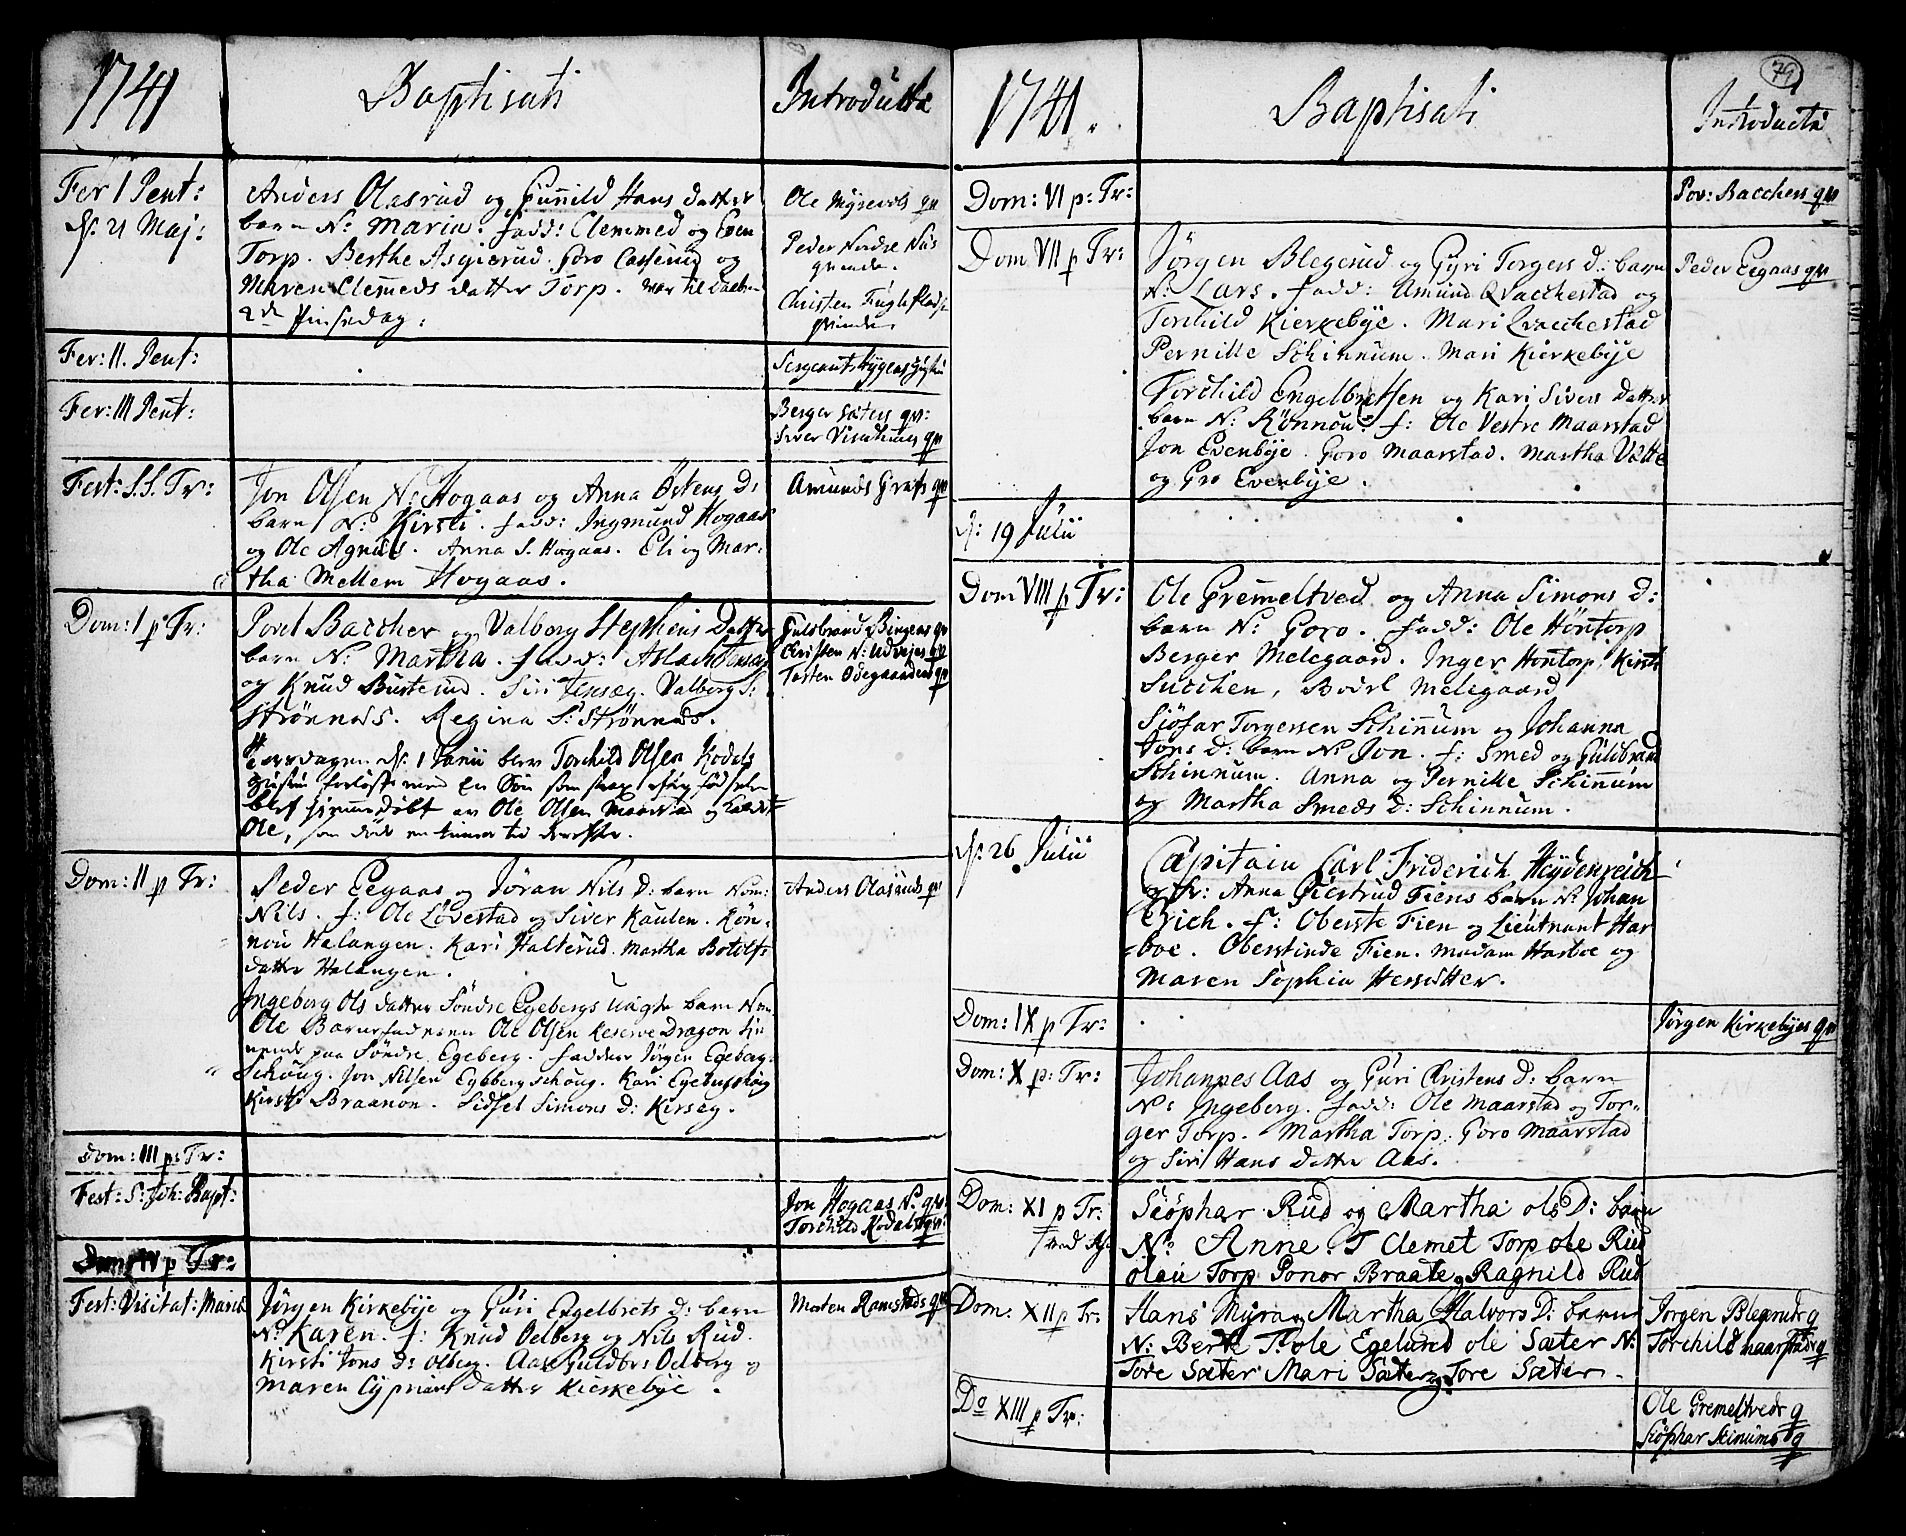 1741
Baptisati
Introducta
Fer I Pent:
d. 21 Maj:
Anders Olasrud og Gunnild Hans datter
barn N: Maria. fadd: Clemmed og Even
Torp. Berthe Asgierud. Goro Casserud og
Maren Clemeds datter Torp. var til daaben
2de Pinsedag:
Ole Mysevols qv
Peder Nordre Niis
qvinde.
Christen Fuglesladt
qvinde
Fer: II. Pent:
Sergeant Hygens Hustru
Fer: III Pent:
Berger Sæters qv:
Siver Visendhunes qv
Fest: S.S. Tr:
Jon Olsen N: Hogaas og Anna Østens D:
barn N: Kirsti. fadd: Ingmund Hogaas
og Ole Agnæs. Anna S. Hogaas. Eli og Mar-
tha Mellem Hogaas.
Amunds Grafs qv
Dom: I p Tr:
Povel Baccher og Valborg Stephens Datter
barn N: Martha. fadd: Aslach Finsæg
og Knud Busterud. Siri Finsæg. Valborg S:
Strønnæs. Regina S: Strønnæs.
Guldbrand Bingens qv
Christen N: Udvejes qv
Torsten Ødegaardens qv
Torsdagen d. 1 Junii blev Torchild Olsen Kodals
Hustru forløst med En Søn som strax efter fødselen
blef hjemmedøbt av Ole Olsen Maarstad og kaldet
Ole, som døde en time tid derefter.
Dom: II p Tr:
Peder Eegaas og Jøran Nils D: barn Nom:
Nils. f: Ole Løvestad og Siver Kaulen. Røn-
nou Halangen. Kari Halterud. Martha Botolfs
datter Halangen.
Anders Olasruds qv
Ingeborg Ols datter Søndre Egebergs Uægte barn Nom
Ole Barnefaderen Ole Olsen Reserve Dragon tie-
nende paa Søndre Egeberg. faddere Jørgen Egeberg-
schoug. Jon Nilsen Egebergschoug. Kari Egebergschoug
Kirsti Braanon. Sidsel Simons D: Kirseg.
Dom: III p: Tr:
Fest: S: Joh: Bapt:
Jon Hogaas N. qv
Torchild Kodals qv:
Dom: IV p Tr:
Fest: Visitat: Mariæ
Jørgen Kirkebye og Guri Engelbrets D: barn
N: Karen. f: Knud Oelberg og Nils Rud.
Kirsti Jons D: Olberg. Aase Guldbrs Oelberg og
Maren Cyprians datter Kierkebye.
Morten Ramstads qv
1741.
Baptisati
Introducta
79
Dom: VI p: Tr:
Pov: Bacchers qv
Dom VII p Tr:
Jørgen Blegerud og Gyri Torgers D: barn
N: Lars. fadd: Amund Qvacchestad og
Torchild Kierkebye. Mari Qvacchestad
Pernille Schinnum. Mari Kierkebye
Peder Eegaas qv
Torchild Engelbretsen og Kari Sivers Datter
barn N: Rønnou. f: Ole Vestre Maarstad
Jon Evenbye. Goro Maarstad. Martha Vatte
og Gro Evenbye.
d: 19 Julii
Dom VIII p Tr:
Ole Gremeltved og Anna Simons D:
barn N: Goro. fadd: Ole Høntorp
Berger Melegaard. Inger Hontorp. Kirsti
Succhen, Bodel Melegaard
Siøfar Torgersen Schinnum og Johanna
Jons D: barn N: Jon. f: Smed og Guldbrand
Schinnum. Anna og Pernille Schinnum
og Martha Smeds D: Schinnum.
d. 26 Julii
Capitain Carl Friderich Heydenreich
og Fr: Anna Giertrud Fiens barn N: Johan
Erich. f: Oberste Fien og Lieutnant Har
boe. Oberstinde Fien. Madam Harboe og
Maren Sophia Herseter.
Dom: IX p Tr:
Jørgen Kirkebyes qv
Dom: X p: Tr:
Johannes Aas og Guri Christens D: barn
N: Ingeborg. fadd: Ole Maarstad og Tor-
ger Torp. Martha Torp. Goro Maarstad
og Siri Hans datter Aas.
Dom: XI p Tr:
Siøphar Rud og Martha ols D: barn
N: Anne. F Clemet Torp ole Rud
olau Torp Ponor Braate Ragnild Rud
Dom: XII p Tr:
Hans Myra Martha Halvors D: barn
N: Berte F: ole Egelund ole Sæter N:
Tore Sæter Mari Sæter og Tore Sæter.
Jørgen Blegeruds q
Torchild Maarstads q
Do XIII p Tr:
Ole Gremeltveds q
Siøphar Skinums q